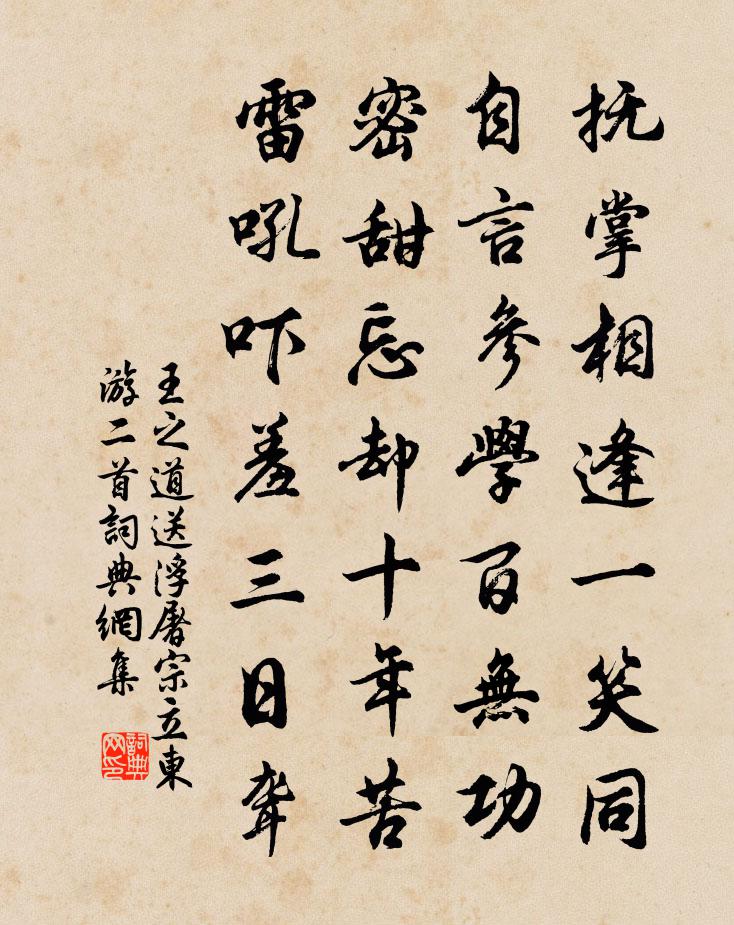 抚掌相逢一笑同
自言參學百無功
密甜忘却十年苦
雷吼吓羞三日聾
王之道送浮屠宗立東
游二首詞典網集
詞典
网印